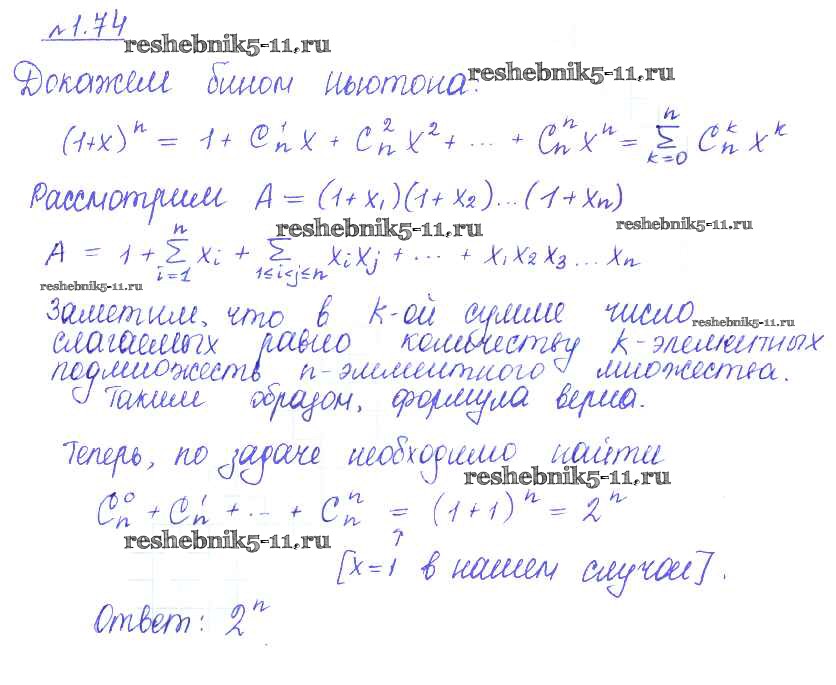 №1.74
reshebnik5-11.ru
Докажем бином Ньютона:
reshebnik5-11.ru
(1+x)^n = 1 + C_n^1 x + C_n^2 x^2 + ... + C_n^n x^n = ∑_{k=0}^n C_n^k x^k
Рассмотрим A = (1+x₁)(1+x₂)...(1+xₙ)
reshebnik5-11.ru
reshebnik5-11.ru
A = 1 + ∑_{i=1}^n x_i + ∑_{1≤i<j≤n} x_i x_j + ... + x₁x₂x₃...xₙ
reshebnik5-11.ru
Заметим, что в k-ой сумме число
reshebnik5-11.ru
слагаемых равно количеству k-элементных
подмножеств n-элементного множества.
Таким образом, формула верна.
Теперь, по задаче необходимо найти
reshebnik5-11.ru
C_n^0 + C_n^1 + ... + C_n^n = (1+1)^n = 2^n
reshebnik5-11.ru
↑
[x=1 в нашем случаи].
Ответ: 2^n